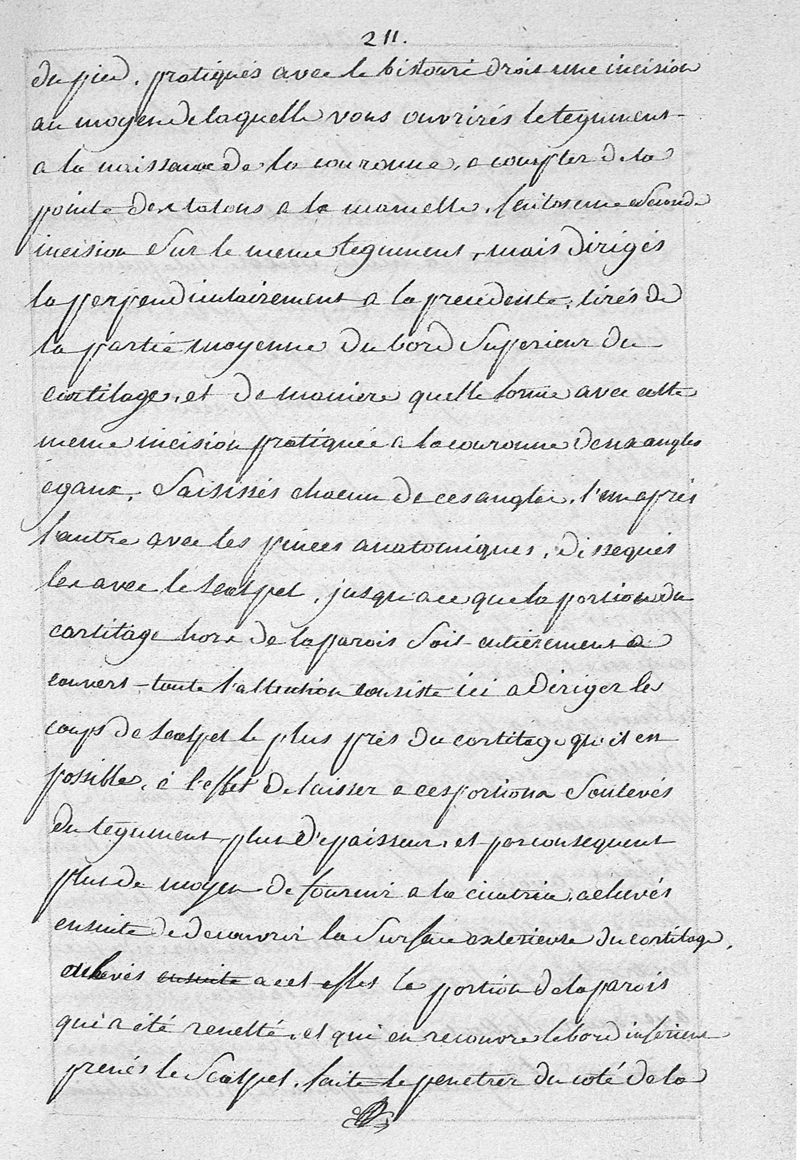 211.
du pied, pratiqués avec le bistouri droit une incision
au moyen de laquelle vous ouvrirés le tegument
a la naissance de la couronne, a compter de la
pointe des talons a la mamelle, faites une seconde
incision sur le meme tegument, mais dirigés
la perpendiculairement a la precedente, tirés de
la partie moyenne du bord superieur du
cartilage, et de maniere quelle forme avec cette
meme incision pratiquée a la couronne deux angles
egaux, saisissés chacun de ces angles, l'un après
l'autre avec les pinces anatomiques, dissequés
les avec le scalpel, jusqu'a ce que la portion du
cartilage hors de la parois soit entierement de
couvert toute l'attention consiste ici a diriger les
coups de scalpel le plus près du cartilage qu'il en
possible, à l'effet de laisser a ces portions soulevés
du tegument plus d'epaisseur, et par consequent
plus de moyen de fournir a la cicatrice, achevés
ensuite de decouvrir la surface exterieure du cartilage,
enlevés ensuite a cet effet la portion de la parois
qui a été renetté, et qui en recouvre le bord inferieur
prenés le scalpel, faite le penetrer du coté de la